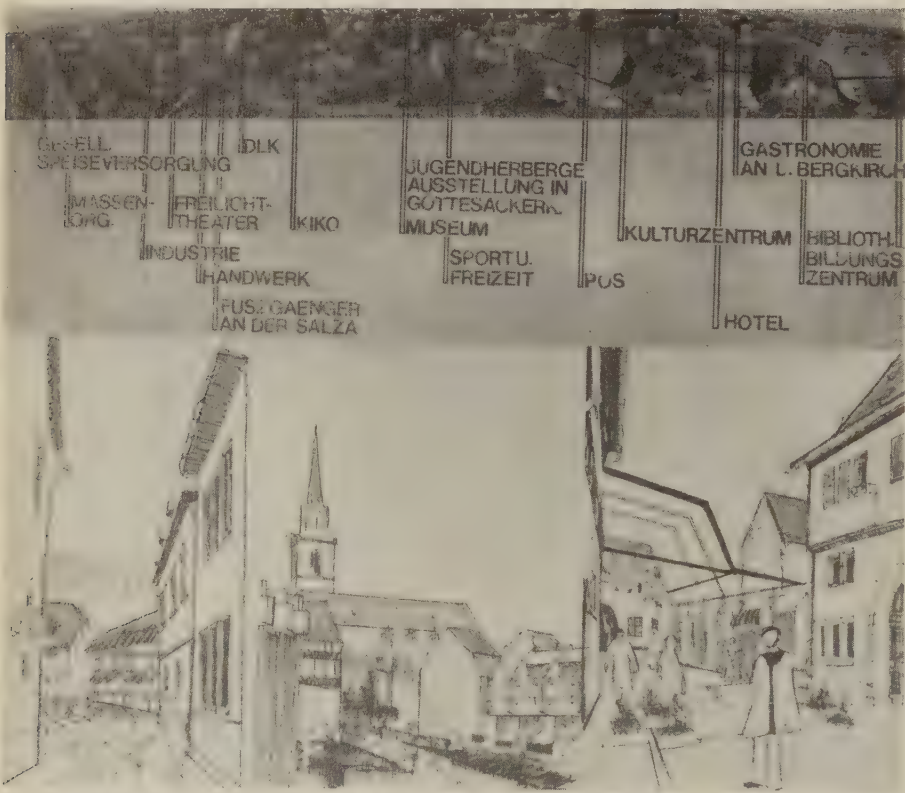 GESELL.
SPEISEVERSORGUNG
MASSEN-
ORG.
INDUSTRIE
FREILICHT-
THEATER
HANDWERK
FUSZGAENGER
AN DER SALZA
DLK
KIKO
JUGENDHERBERGE
AUSSTELLUNG IN
GOTTESACKERK.
MUSEUM
SPORT U.
FREIZEIT
POS
KULTURZENTRUM
HOTEL
GASTRONOMIE
AN L. BERGKIRCH
BIBLIOTH.
BILDUNGS
ZENTRUM